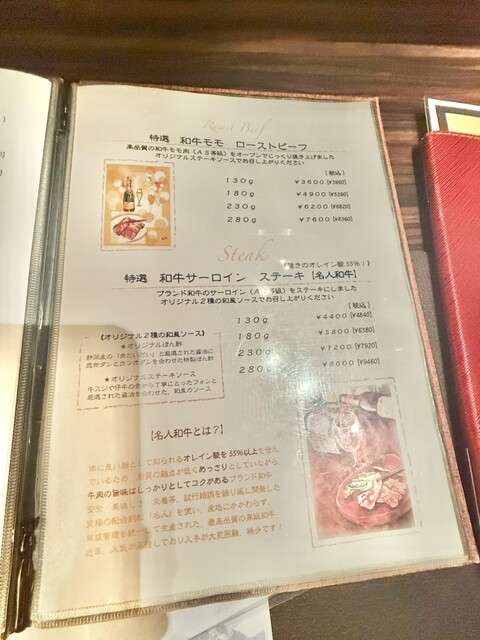 Roast Beef
特選 和牛モモ ローストビーフ
高品質の和牛モモ肉（A5等級）をオーブンでじっくり焼き上げました
オリジナルステーキソースでお召し上がりください
［税込］
130g ￥3600［3960］
180g ￥4900［5390］
230g ￥6200［6820］
280g ￥7600［8360］
Steak
きのオレイン酸55%！
特選 和牛サーロイン ステーキ【名人和牛】
ブランド和牛のサーロイン（A 等級）をステーキにしました
オリジナル2種の和風ソースでお召し上がりください
［税込］
130g ￥4400［4840］
180g ￥5800［6380］
230g ￥7200［7920］
280g ￥8600［9460］
《オリジナル2種の和風ソース》
★オリジナルぽん酢
静岡産の「炎だいだい」と厳選された醤油に
昆布ダシとカツオダシを合わせた特製ぽん酢
★オリジナルステーキソース
牛スジや仔牛の骨から丁寧にとったフォンと
厳選された醤油を合わせた、和風のソース
【名人和牛とは？】
体に良い脂として知られるオレイン酸を55%以上も含ん
でいるため 脂質の融点が低くあっさりとしていながら、
牛肉の旨味はしっかりとしてコクがあるブランド和牛
安全・美味しさ・栄養等、試行錯誤を繰り返し開発した
究極の配合飼料「名人」を使い、産地にかかわらず、
育成管理を統一して生産された、最高品質の高級和牛
近年、人気が高騰しており入手が大変困難、稀少です！